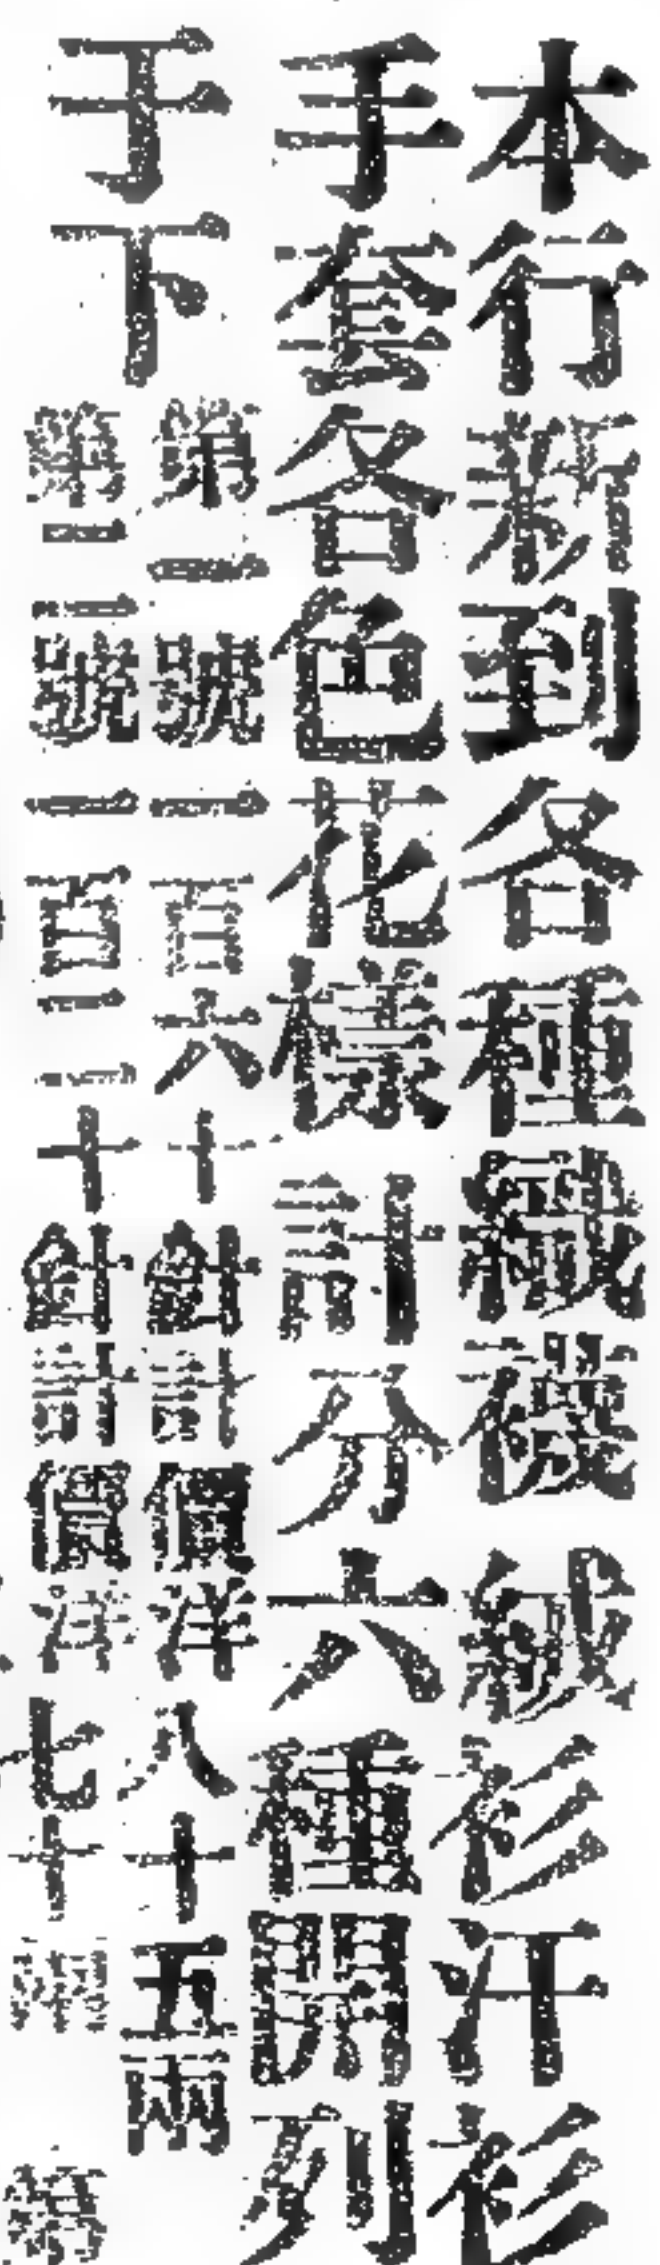 本行新到各種織襪絨衫汗衫
手套各色花樣計分六種開列
于下
第一號一百六十針計價洋八十五兩
第二號一百二十針計價洋七十兩
第